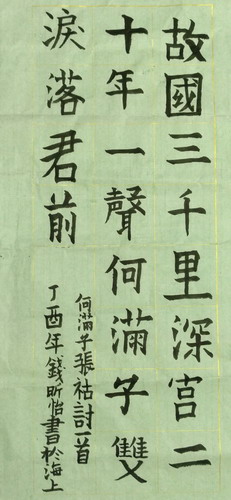 故國三千里深宫二
十年一聲何滿子雙
淚落君前
何滿子張祜討一首
丁酉年錢昕怡書於海上